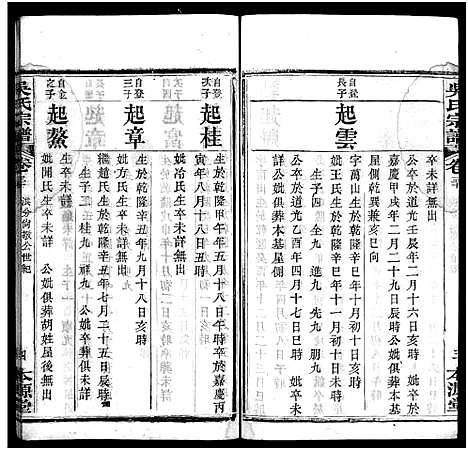 吳氏宗譜
三 本源堂
卒未詳
公卒於道光壬辰年二月十六日亥時
妣卒於嘉慶甲戌年二月二十九日辰時公妣卒葬
屋側乾巽兼亥巳向
自登長子
起雲
字萬山生於乾隆辛巳年十月初十日亥時
妣王氏生於乾隆辛巳年十一月初十日未時
生子四 全九 進九 先九 朋九
公卒於道光乙酉年四月十七日巳時
妣俱葬本基屋側
自登次子
起桂
生於乾隆甲午年五月十六日戌時卒於嘉慶丙
寅年八月十八日酉時
妣冶氏生卒未詳無出
自登三子
起章
生於乾隆辛丑年九月十八日亥時
妣方氏生卒葬俱未詳
繼趙氏生於乾隆辛丑年七月二十五日亥時
生子二 桂九 祥九 公妣卒葬俱未詳
自金之子
起鰲
生卒未詳
妣開氏生卒未詳 公妣俱葬胡姓屋後無出
吳氏宗譜
世紀
四 本源堂